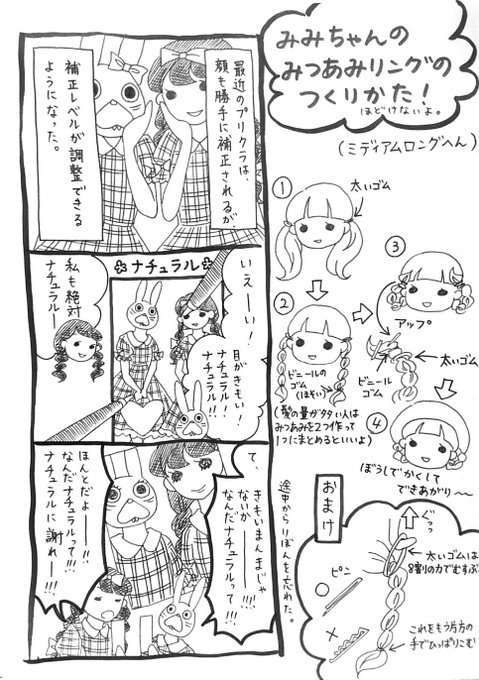 みみちゃんの
みつあみリングの
つくりかた!
ほどけないよ。
(ミディアムロングへん)
①
太いゴム
②
ビニールの
ゴム
(ほそい)
(髪の量が多い人は
みつあみを2つ作って
1つにまとめるといいよ)
③
アップ
太いゴム
ビニール
ゴム
④
ぼうしでかくして
できあがり〜
おまけ
ぐっっ
太いゴムは
8割の力でむすぶ
ピン
○
×
これをもう片方の
手でひっぱりこむ
最近のプリクラは、
顔も勝手に補正されるが、
補正レベルが調整できる
ようになった。
ナチュラル
いえーい!
目がきもい!
ナチュラル!
ナチュラル!!
私も絶対
ナチュラルー
て、
きもいまんまじゃ
ないかーーー!!!
なんだナチュラルって!!!
ほんとだよーー!!
なんだナチュラルって!!!
ナチュラルに謝れー!!!
途中からりぼんを忘れた。